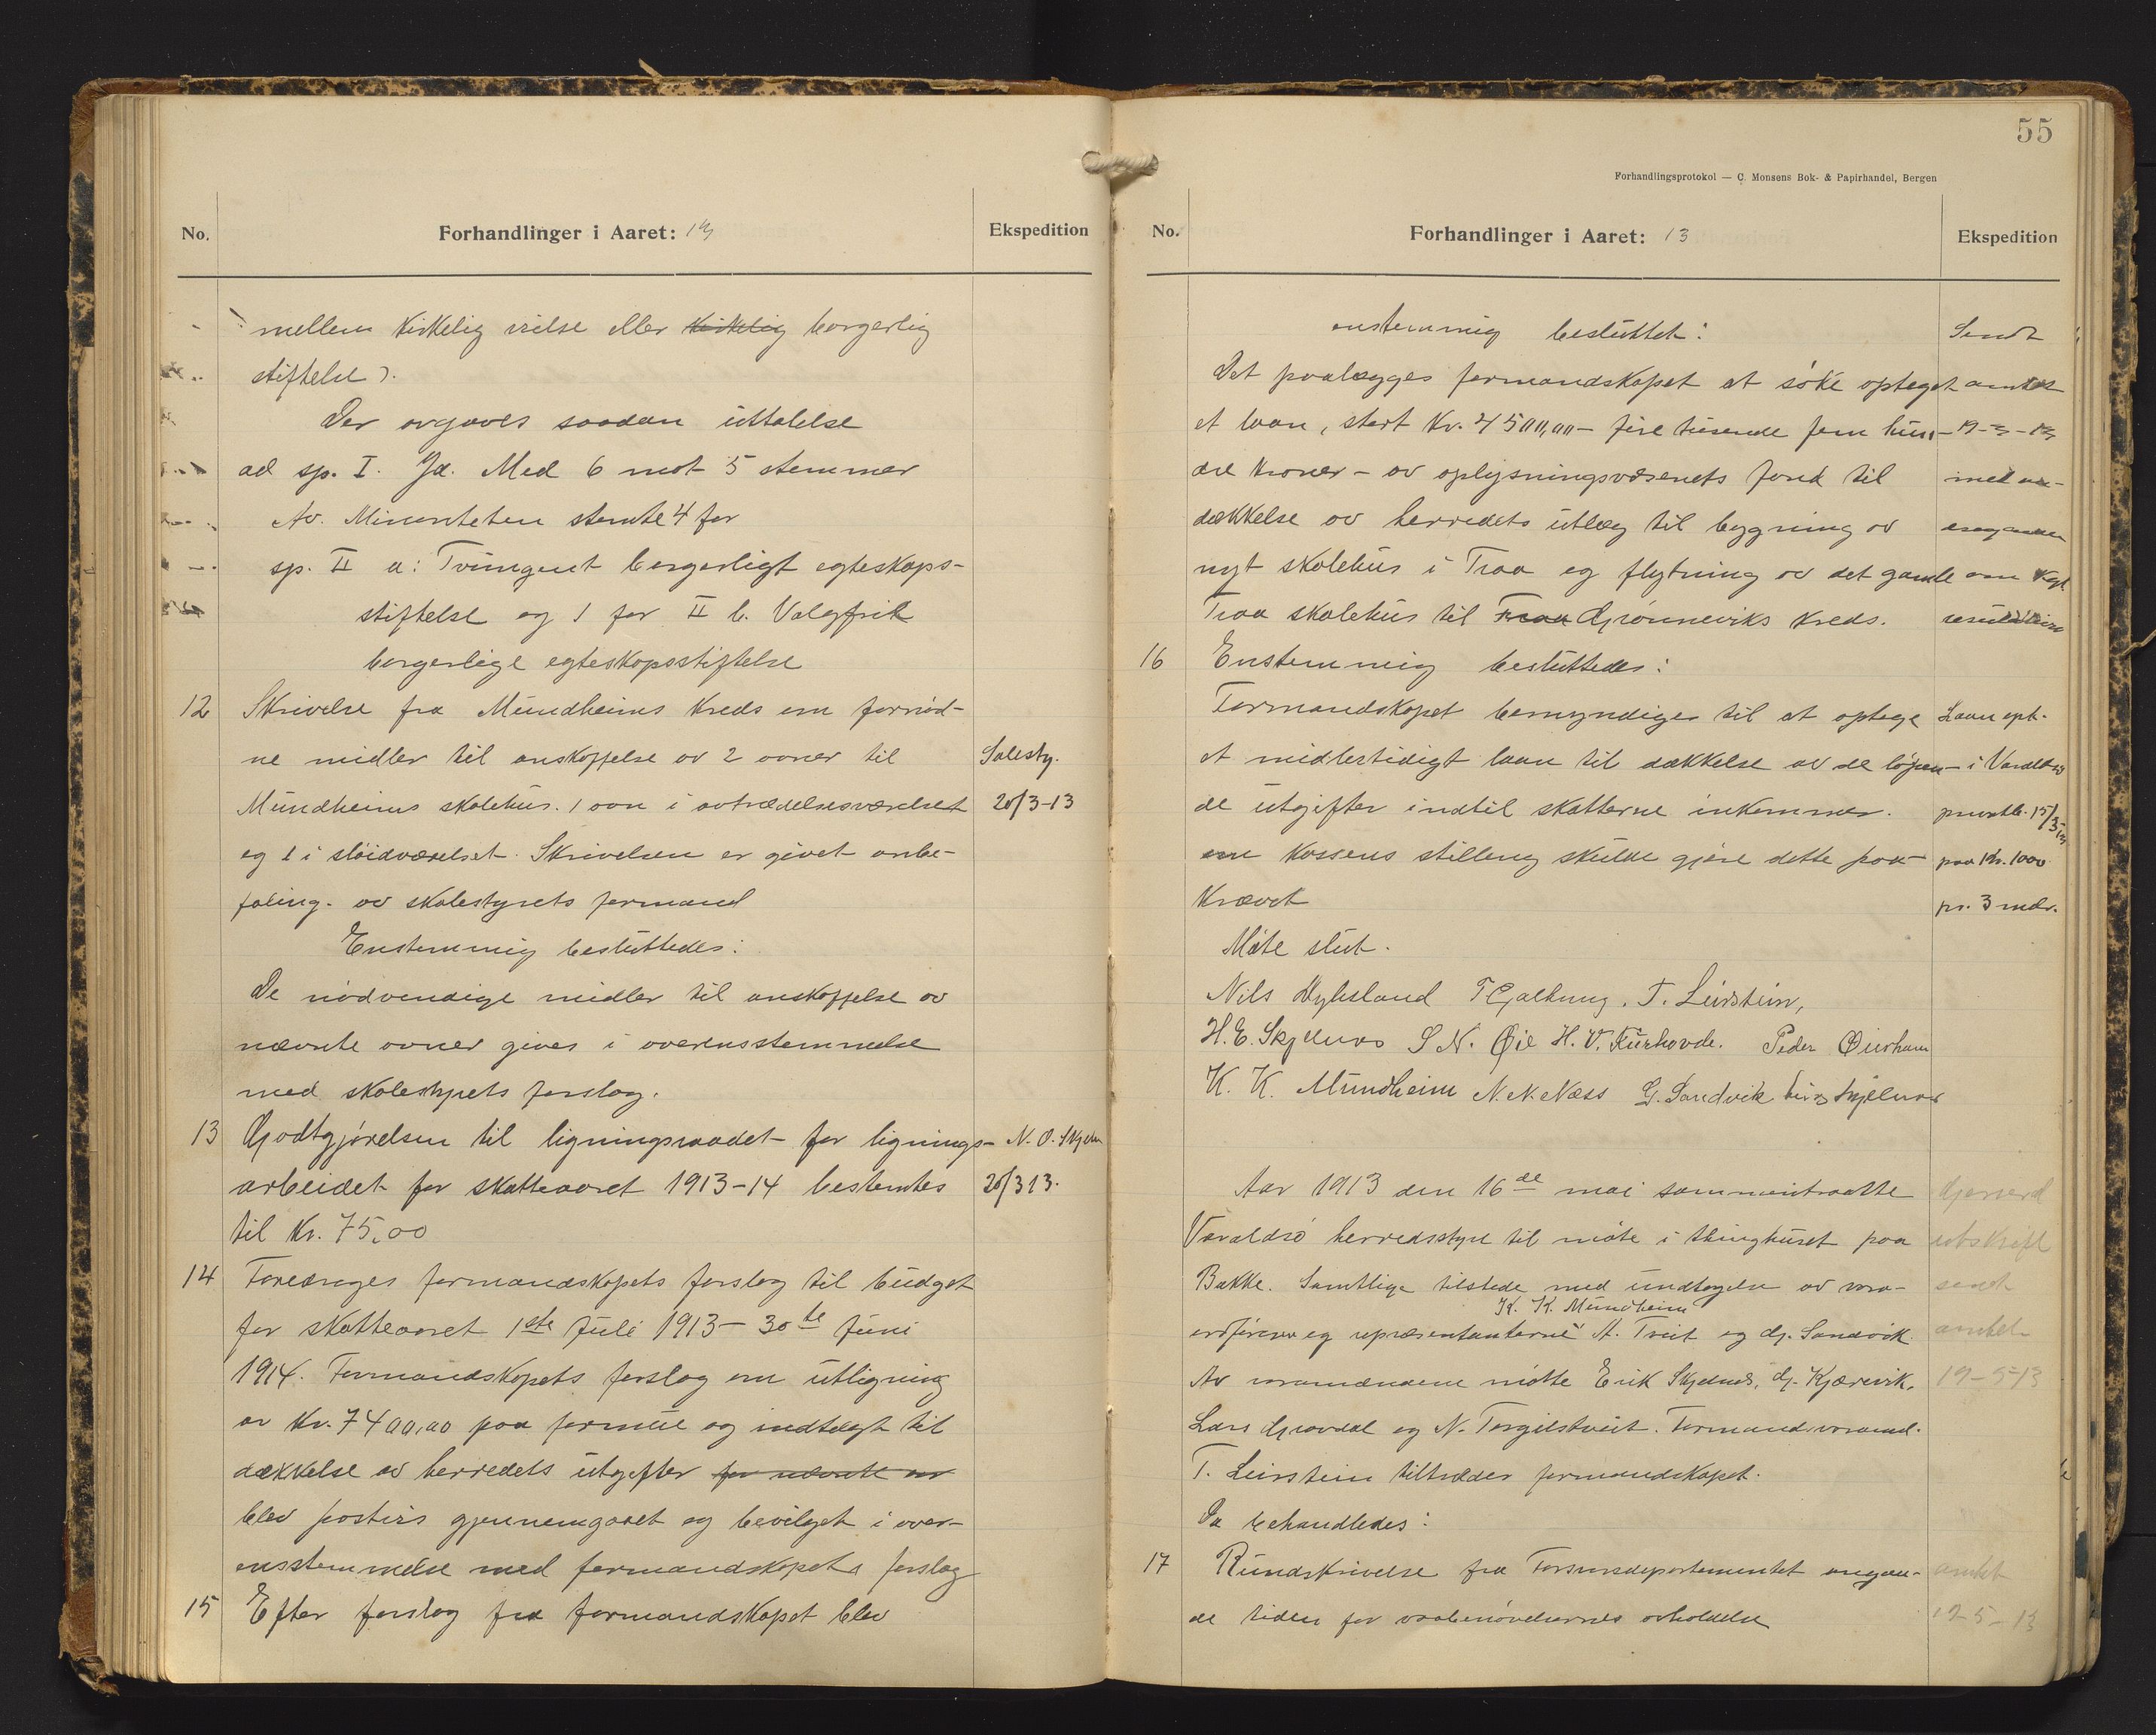 No.
Forhandlinger i Aaret: 13
Ekspedition
mellem kirkelig vielse eller kirkelig borgerlig
stiftelse).
Der avgaves saadan uttalelse
ad sp. I. Ja. Med 6 mot 5 stemmer
Av. Minoriteten stemte 4 for
sp. II a: Tvungent borgerligt egteskaps-
stiftelse og 1 for II b. Valgfrit
borgerlige egteskapsstiftelse
12 Skrivelse fra Mundheims kreds om fornød-
ne midler til anskaffelse av 2 ovner til
Skolesty.
Mundheims skolehus. 1 ovn i avtrædelsesværelset
20/3-13
og 1 i sløidværelset. Skrivelsen er givet anbe-
faling. av skolestyrets formand
Enstemmig besluttedes:
De nødvendige midler til anskaffelse av
nævnte ovner gives i overensstemmelse
med skolestyrets forslag.
13 Godtgjørelsen til ligningsraadet for lignings-
N. O. Skjeln
arbeidet for skatteaaret 1913-14 bestemtes
20/3 13.
til Kr. 75,00
14 Foredrages formandskapets forslag til budget
for skatteaaret 1ste Juli 1913 - 30te Juni
1914. Formandskapets forslag om utligning
av Kr. 7400,00 paa formue og indtægt til
dækkelse av herredets utgifter for nævnte aar
blev postvis gjennemgaaet og bevilget i over-
ensstemmelse med formandskapets forslag
15 Efter forslag fra formandskapet blev
55
Forhandlingsprotokol — C. Monsens Bok- & Papirhandel, Bergen
No.
Forhandlinger i Aaret: 13
Ekspedition
enstemmig besluttet:
Sendt
Det paalægges formandskapet at søke optaget
amtet
et laan, stort Kr. 4500,00 - fire tusende fem hun-
19-3-13
dre kroner - av oplysningsvæsenets fond til
med an-
dækkelse av herredets utlæg til bygning av
nyt skolehus i Traa og flytning av det gamle
om kgl
Traa skolehus til Traa Grønneviks kreds.
16 Enstemmig besluttedes:
Formandskapet bemyndiges til at optage
Laan opt.
et midlertidigt laan til dækkelse av de løpen-
i Varaldsø
de utgifter indtil skatterne inkommer.
privatb. 15/3 13
om kassens stilling skulde gjøre dette paa-
paa Kr. 1000
krævet
pr. 3 mdr.
Møte slut.
Nils Hylesland T Gjalkung. T. Leirstein,
H. E. Skjelnes S N. Øie H. V. Furhovde. Peder Øierhavn
K. K. Mundheim N. N. Næss G. Sandvik Skjelnes
Aar 1913 den 16de mai sammentraatte
Gjenerd
Varaldsø herredsstyre til møte i thinghuset paa
utskrift
Bakke. Samtlige tilstede med undtagelse av vara-
sendt
K. K. Mundheim
ordfører og repræsentanterne A. Tveit og G. Sandvik.
amtet
Av varamændene møtte Erik Skjelnes, G. Kjærevik,
19-5-13
Lars Gravdal og N. Torgilstveit. Formand varamd.
T. Leirstein tiltræder formandskapet.
Da behandledes:
17 Rundskrivelse fra Forsvarsdepartementet angaaen-
amtet
de tiden for vaabenøvelsernes avholdelse
19-5-13